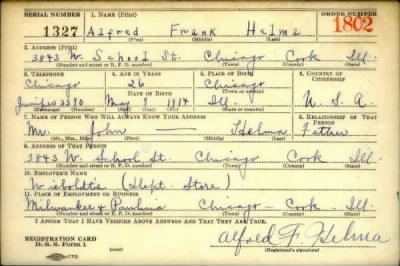 SERIAL NUMBER 1. NAME (Print) ORDER NUMBER
1327 Alfred Frank Helma 1802
(First) (Middle) (Last)
2. ADDRESS (Print)
3843 W. School St. Chicago Cook Ill.
(Number and street or R. F. D. number) (Town) (County) (State)
3. TELEPHONE 4. AGE IN YEARS 5. PLACE OF BIRTH 6. COUNTRY OF CITIZENSHIP
Chicago 26 Chicago
DATE OF BIRTH
Juniper 3390 May 9 1914 Ill. U. S. A.
(Exchange) (Number) (Mo.) (Day) (Yr.) (State or country)
7. NAME OF PERSON WHO WILL ALWAYS KNOW YOUR ADDRESS 8. RELATIONSHIP OF THAT PERSON
Mr. John — Helma Father
(Mr., Mrs., Miss) (First) (Middle) (Last)
9. ADDRESS OF THAT PERSON
3843 W. School St. Chicago Cook Ill.
(Number and street or R. F. D. number) (Town) (County) (State)
10. EMPLOYER'S NAME
Wieboldts (Dept. Store)
11. PLACE OF EMPLOYMENT OR BUSINESS
Milwaukee & Paulina Chicago — Cook - Ill.
(Number and street or R. F. D. number) (Town) (County) (State)
I AFFIRM THAT I HAVE VERIFIED ABOVE ANSWERS AND THAT THEY ARE TRUE.
REGISTRATION CARD
D. S. S. Form 1 (over) Alfred F. Helma
(Registrant's signature)